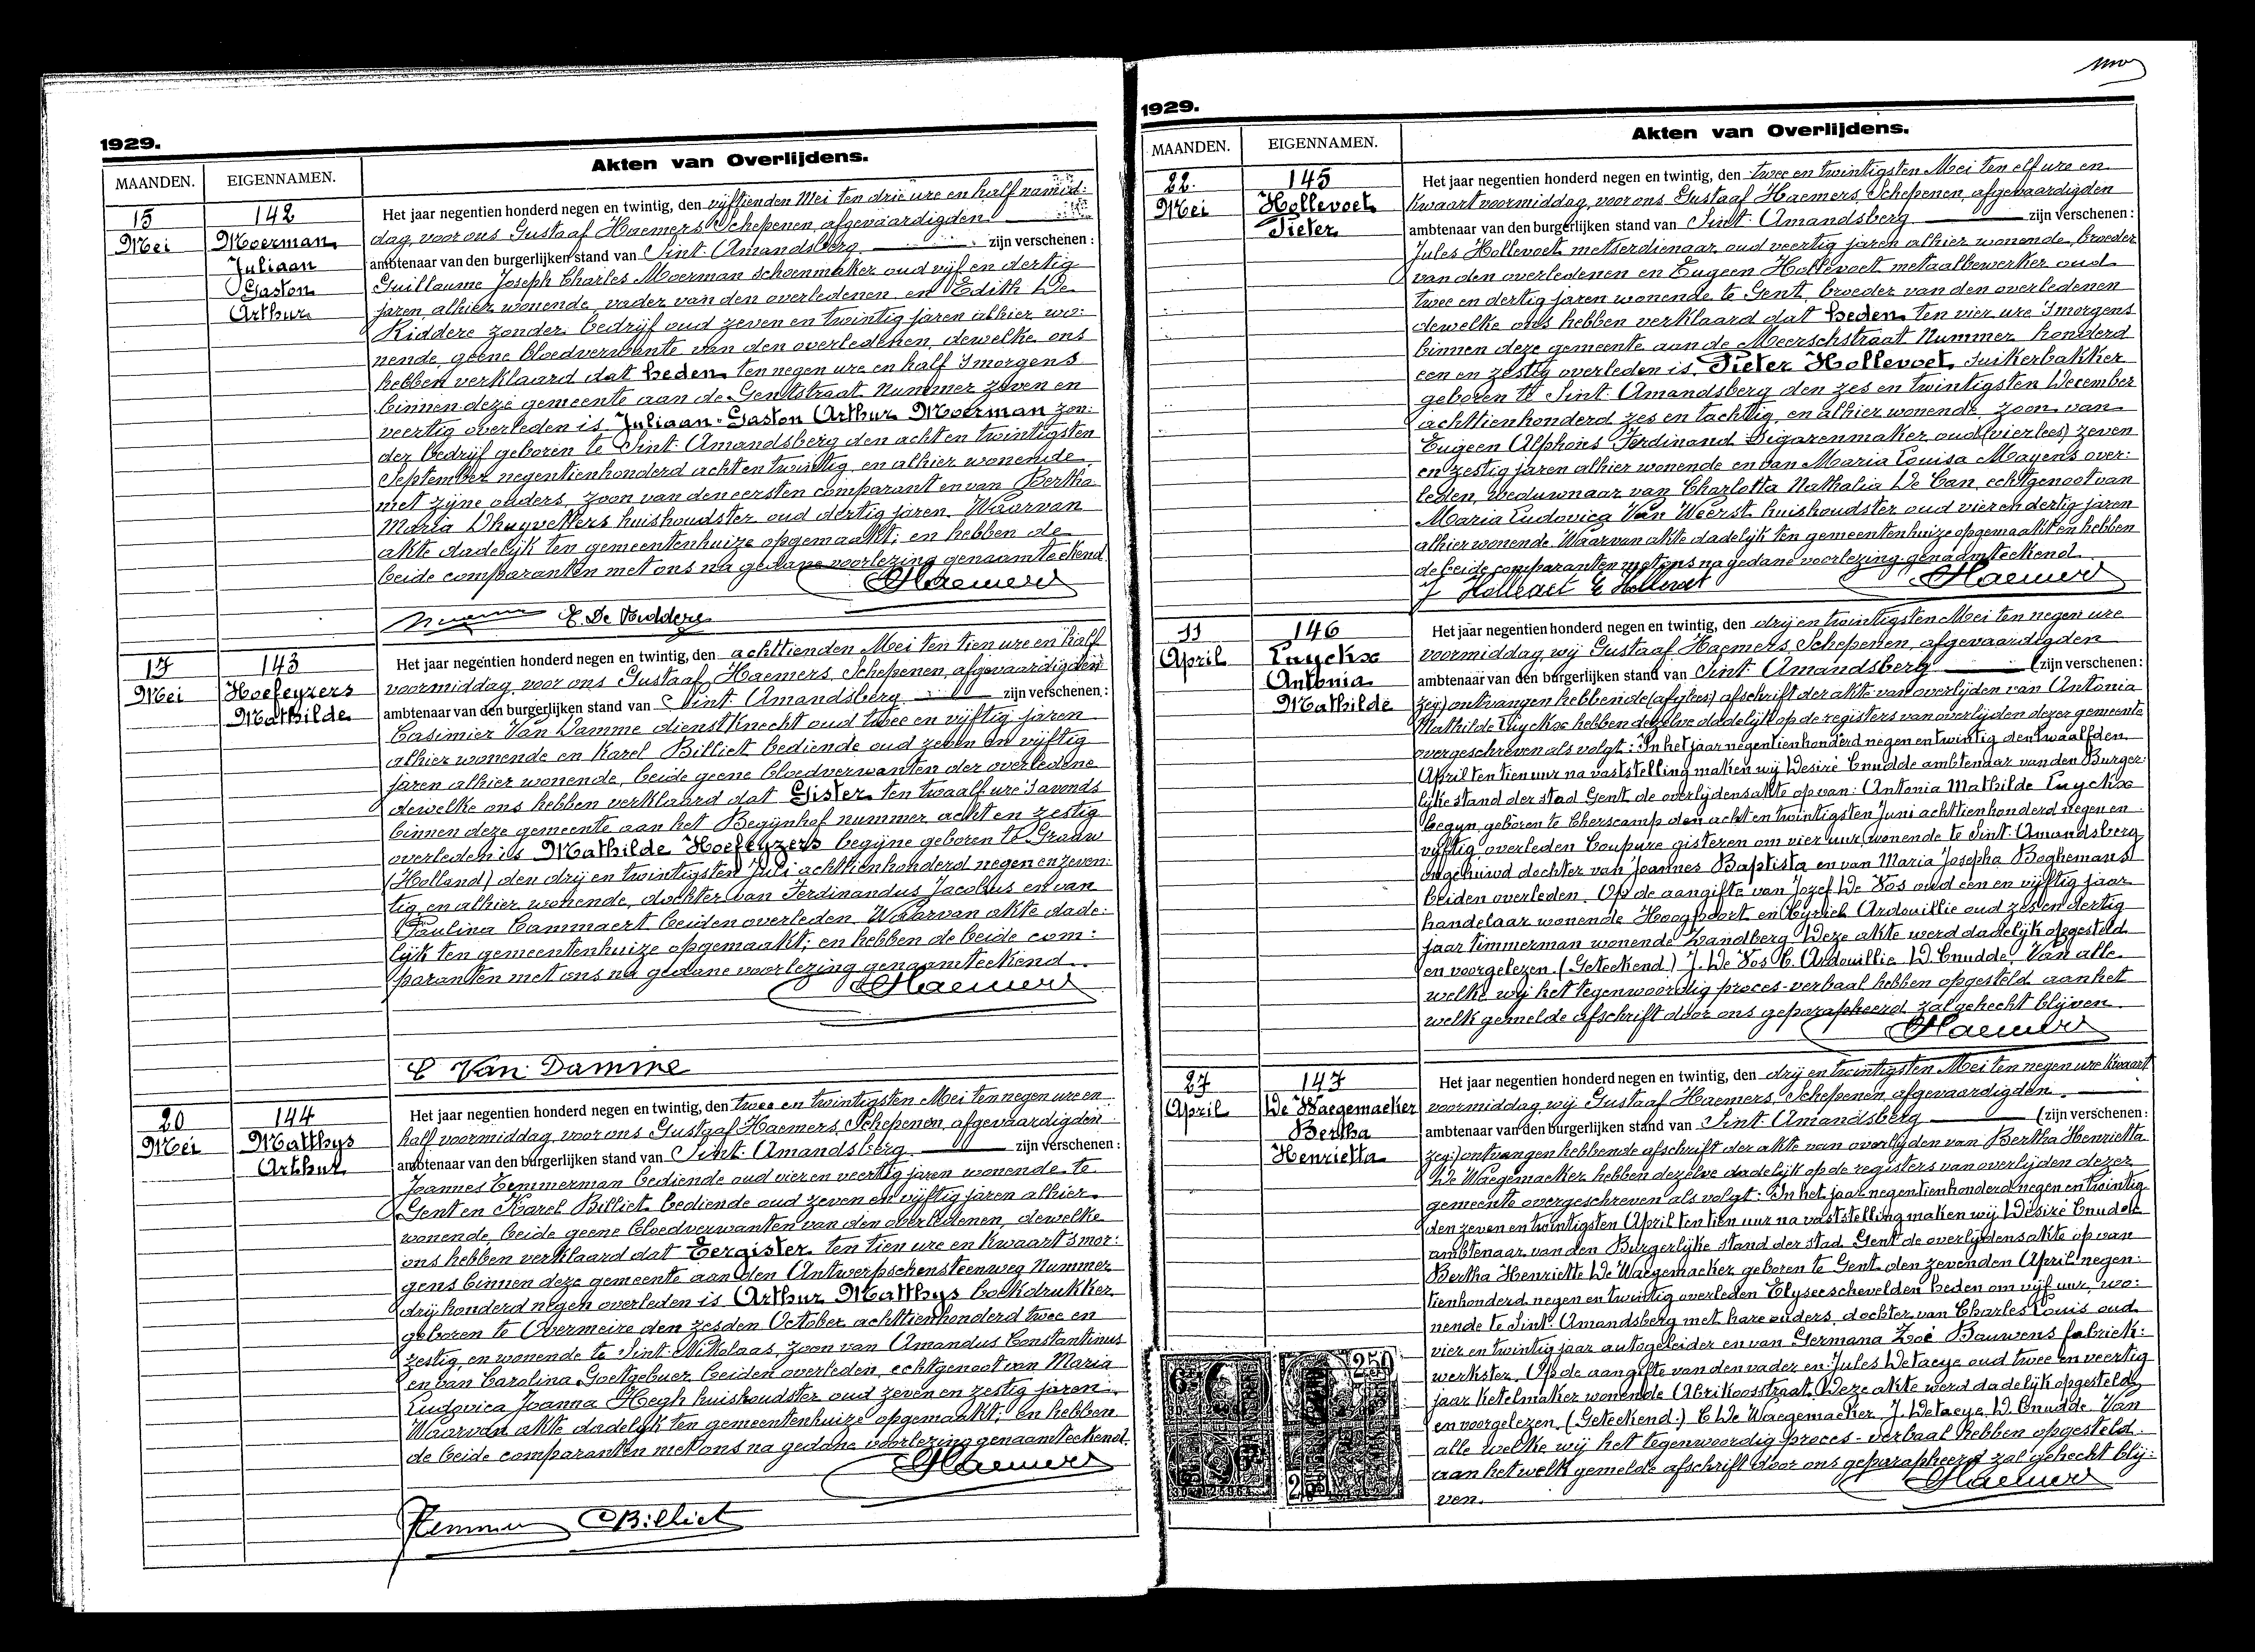 1929.
Akten van Overlijdens.
MAANDEN. EIGENNAMEN.
15 Mei
142
Moerman
Juliaan
Gaston
Arthur
Het jaar negentien honderd negen en twintig, den vijftienden Mei ten drie ure en half namid:
dag, voor ons Gustaaf Haemers Schepenen, afgevaardigden
ambtenaar van den burgerlijken stand van Sint-Amandsberg zijn verschenen:
Guillaume Joseph Charles Moerman schoenmaker oud vijf en dertig
jaren, alhier wonende, vader van den overledenen en Edith De
Riddere zonder bedrijf oud zeven en twintig jaren alhier wo:
nende, geene bloedverwante van den overledenen, dewelke ons
hebben verklaard dat heden ten negen ure en half 's morgens
binnen deze gemeente aan de Gentstraat Nummer zeven en
veertig overleden is Juliaan-Gaston Arthur Moerman zon:
der bedrijf geboren te Sint-Amandsberg den acht en twintigsten
September negentienhonderd acht en twintig, en alhier wonende
met zijne ouders, zoon van den eersten comparant en van Bertha
Maria Dhuyvetters huishoudster oud dertig jaren. Waarvan
akte dadelijk ten gemeentenhuize opgemaakt; en hebben de
beide comparanten met ons na gedane voorlezing genaamteekend.
Haemers
17 Mei
143
Hoefeyzers
Mathilde
Het jaar negentien honderd negen en twintig, den achttienden Mei ten tien ure en half
voormiddag, voor ons Gustaaf Haemers, Schepenen, afgevaardigden
ambtenaar van den burgerlijken stand van Sint-Amandsberg zijn verschenen:
Casimier Van Damme dienstknecht oud twee en vijftig jaren
alhier wonende en Karel Billiet bediende oud zeven en vijftig
jaren alhier wonende, beide geene bloedverwanten der overledene
dewelke ons hebben verklaard dat Gister ten twaalf ure 's avonds
binnen deze gemeente aan het Begijnhof nummer acht en zestig
overleden is Mathilde Hoefeyzers begijne geboren te Graauw
(Holland) den drij en twintigsten Juli achttienhonderd negen en zeven:
tig, en alhier wonende, dochter van Ferdinandus Jacobus en van
Paulina Cammaert beiden overleden. Waarvan akte dade:
lijk ten gemeentenhuize opgemaakt; en hebben de beide com:
paranten met ons na gedane voorlezing genaamteekend.
Haemers
C Van Damme
20 Mei
144
Matthys
Arthur
Het jaar negentien honderd negen en twintig, den twee en twintigsten Mei ten negen ure en
half voormiddag, voor ons Gustaaf Haemers, Schepenen, afgevaardigden
ambtenaar van den burgerlijken stand van Sint-Amandsberg zijn verschenen:
Joannes Temmerman bediende oud vier en veertig jaren wonende te
Gent en Karel Billiet bediende oud zeven en vijftig jaren alhier
wonende, beide geene bloedverwanten van den overledenen, dewelke
ons hebben verklaard dat Eergister ten tien ure en kwaart 's mor:
gens binnen deze gemeente aan den Antwerpschensteenweg Nummer
drij honderd negen overleden is Arthur Matthys boekdrukker
geboren te Overmeire den zesden October achttienhonderd twee en
zestig, en wonende te Sint-Nikolaas, zoon van Amandus Constantinus
en van Carolina Goetgebuer beiden overleden, echtgenoot van Maria
Ludovica Joanna Hegh huishoudster oud zeven en zestig jaren.
Waarvan akte dadelijk ten gemeentenhuize opgemaakt; en hebben
de beide comparanten met ons na gedane voorlezing genaamteekend.
Haemers
Billiet
1929.
Akten van Overlijdens.
MAANDEN. EIGENNAMEN.
22. Mei
145
Hollevoet
Pieter
Het jaar negentien honderd negen en twintig, den twee en twintigsten Mei ten elf ure en
kwaart voormiddag, voor ons Gustaaf Haemers, Schepenen, afgevaardigden
ambtenaar van den burgerlijken stand van Sint-Amandsberg zijn verschenen:
Jules Hollevoet metserdienaar oud veertig jaren alhier wonende, broeder
van den overledenen en Eugeen Hollevoet metaalbewerker oud
twee en dertig jaren wonende te Gent, broeder van den overledenen
dewelke ons hebben verklaard dat heden ten vier ure 's morgens
binnen deze gemeente aan de Meerschstraat Nummer honderd
een en zestig overleden is, Pieter Hollevoet, suikerbakker
geboren te Sint-Amandsberg den zes en twintigsten December
achttienhonderd zes en tachtig, en alhier wonende, zoon van
Eugeen Alphons Ferdinand sigarenmaker oud (vier lees) zeven
en zestig jaren alhier wonende en van Maria Louisa Mayens over:
leden, weduwnaar van Charlotta Nathalia De Can, echtgenoot van
Maria Ludovica Van Weerst huishoudster oud vier en dertig jaren
alhier wonende. Waarvan akte dadelijk ten gemeentenhuize opgemaakt en hebben
de beide comparanten met ons na gedane voorlezing genaamteekend.
J Hollevoet E Hollevoet Haemers
11 April
146
Luyckx
Antonia
Mathilde
Het jaar negentien honderd negen en twintig, den drij en twintigsten Mei ten negen ure
voormiddag wij Gustaaf Haemers, Schepenen, afgevaardigden
ambtenaar van den burgerlijken stand van Sint-Amandsberg (zijn verschenen:
zeg:) ontvangen hebbende afschrift der akte van overlijden van Antonia
Mathilde Luyckx hebben dezelve dadelijk op de registers van overlijden dezer gemeente
overgeschreven als volgt: In het jaar negentienhonderd negen en twintig den twaalfden
April ten tien uur na vaststelling maken wij Desiré Cnudde ambtenaar van den Burger:
lijke stand der stad Gent de overlijdensakte op van: Antonia Mathilde Luyckx
begijn, geboren te Cherscamp den acht en twintigsten Juni achttienhonderd negen en
vijftig overleden Coupure gisteren om vier uur, wonende te Sint-Amandsberg
ongehuwd dochter van Joannes Baptista en van Maria Josepha Boghemans
beiden overleden. Op de aangifte van Jozef De Vos oud een en vijftig jaar
handelaar wonende Hoogpoort en Cyriel Ardouillie oud zes en dertig
jaar timmerman wonende Zandberg. Deze akte werd dadelijk opgesteld
en voorgelezen. (Geteekend) J. De Vos C. Ardouillie D. Cnudde. Van alle
welke wij het tegenwoordig proces-verbaal hebben opgesteld aan het
welk gemelde afschrift door ons geparapheerd zal gehecht blijven.
Haemers
27 April
147
De Waegemaeker
Bertha
Henrietta
Het jaar negentien honderd negen en twintig, den drij en twintigsten Mei ten negen ure kwaart
voormiddag wij Gustaaf Haemers, Schepenen, afgevaardigden
ambtenaar van den burgerlijken stand van Sint-Amandsberg (zijn verschenen:
zeg:) ontvangen hebbende afschrift der akte van overlijden van Bertha Henrietta
De Waegemaeker hebben dezelve dadelijk op de registers van overlijden dezer
gemeente overgeschreven als volgt: In het jaar negentienhonderd negen en twintig
den zeven en twintigsten April ten tien uur na vaststelling maken wij Desiré Cnudde
ambtenaar van den Burgerlijke stand der stad Gent de overlijdensakte op van
Bertha Henriette De Waegemaeker geboren te Gent den zevenden April negen:
tienhonderd negen en twintig overleden Elyseeschevelden heden om vijf uur, wo:
nende te Sint-Amandsberg met hare ouders, dochter van Charles Louis oud
vier en twintig jaar autogeleider en van Germana Zoë Bauwens fabriek:
werkster. Op de aangifte van den vader en Jules Detaeye oud twee en veertig
jaar ketelmaker wonende Abrikoosstraat. Deze akte werd dadelijk opgesteld
en voorgelezen. (Geteekend:) C De Waegemaeker J. Detaeye D. Cnudde. Van
alle welke wij het tegenwoordig proces-verbaal hebben opgesteld
aan het welk gemelde afschrift door ons geparapheerd zal gehecht blij:
ven.
Haemers